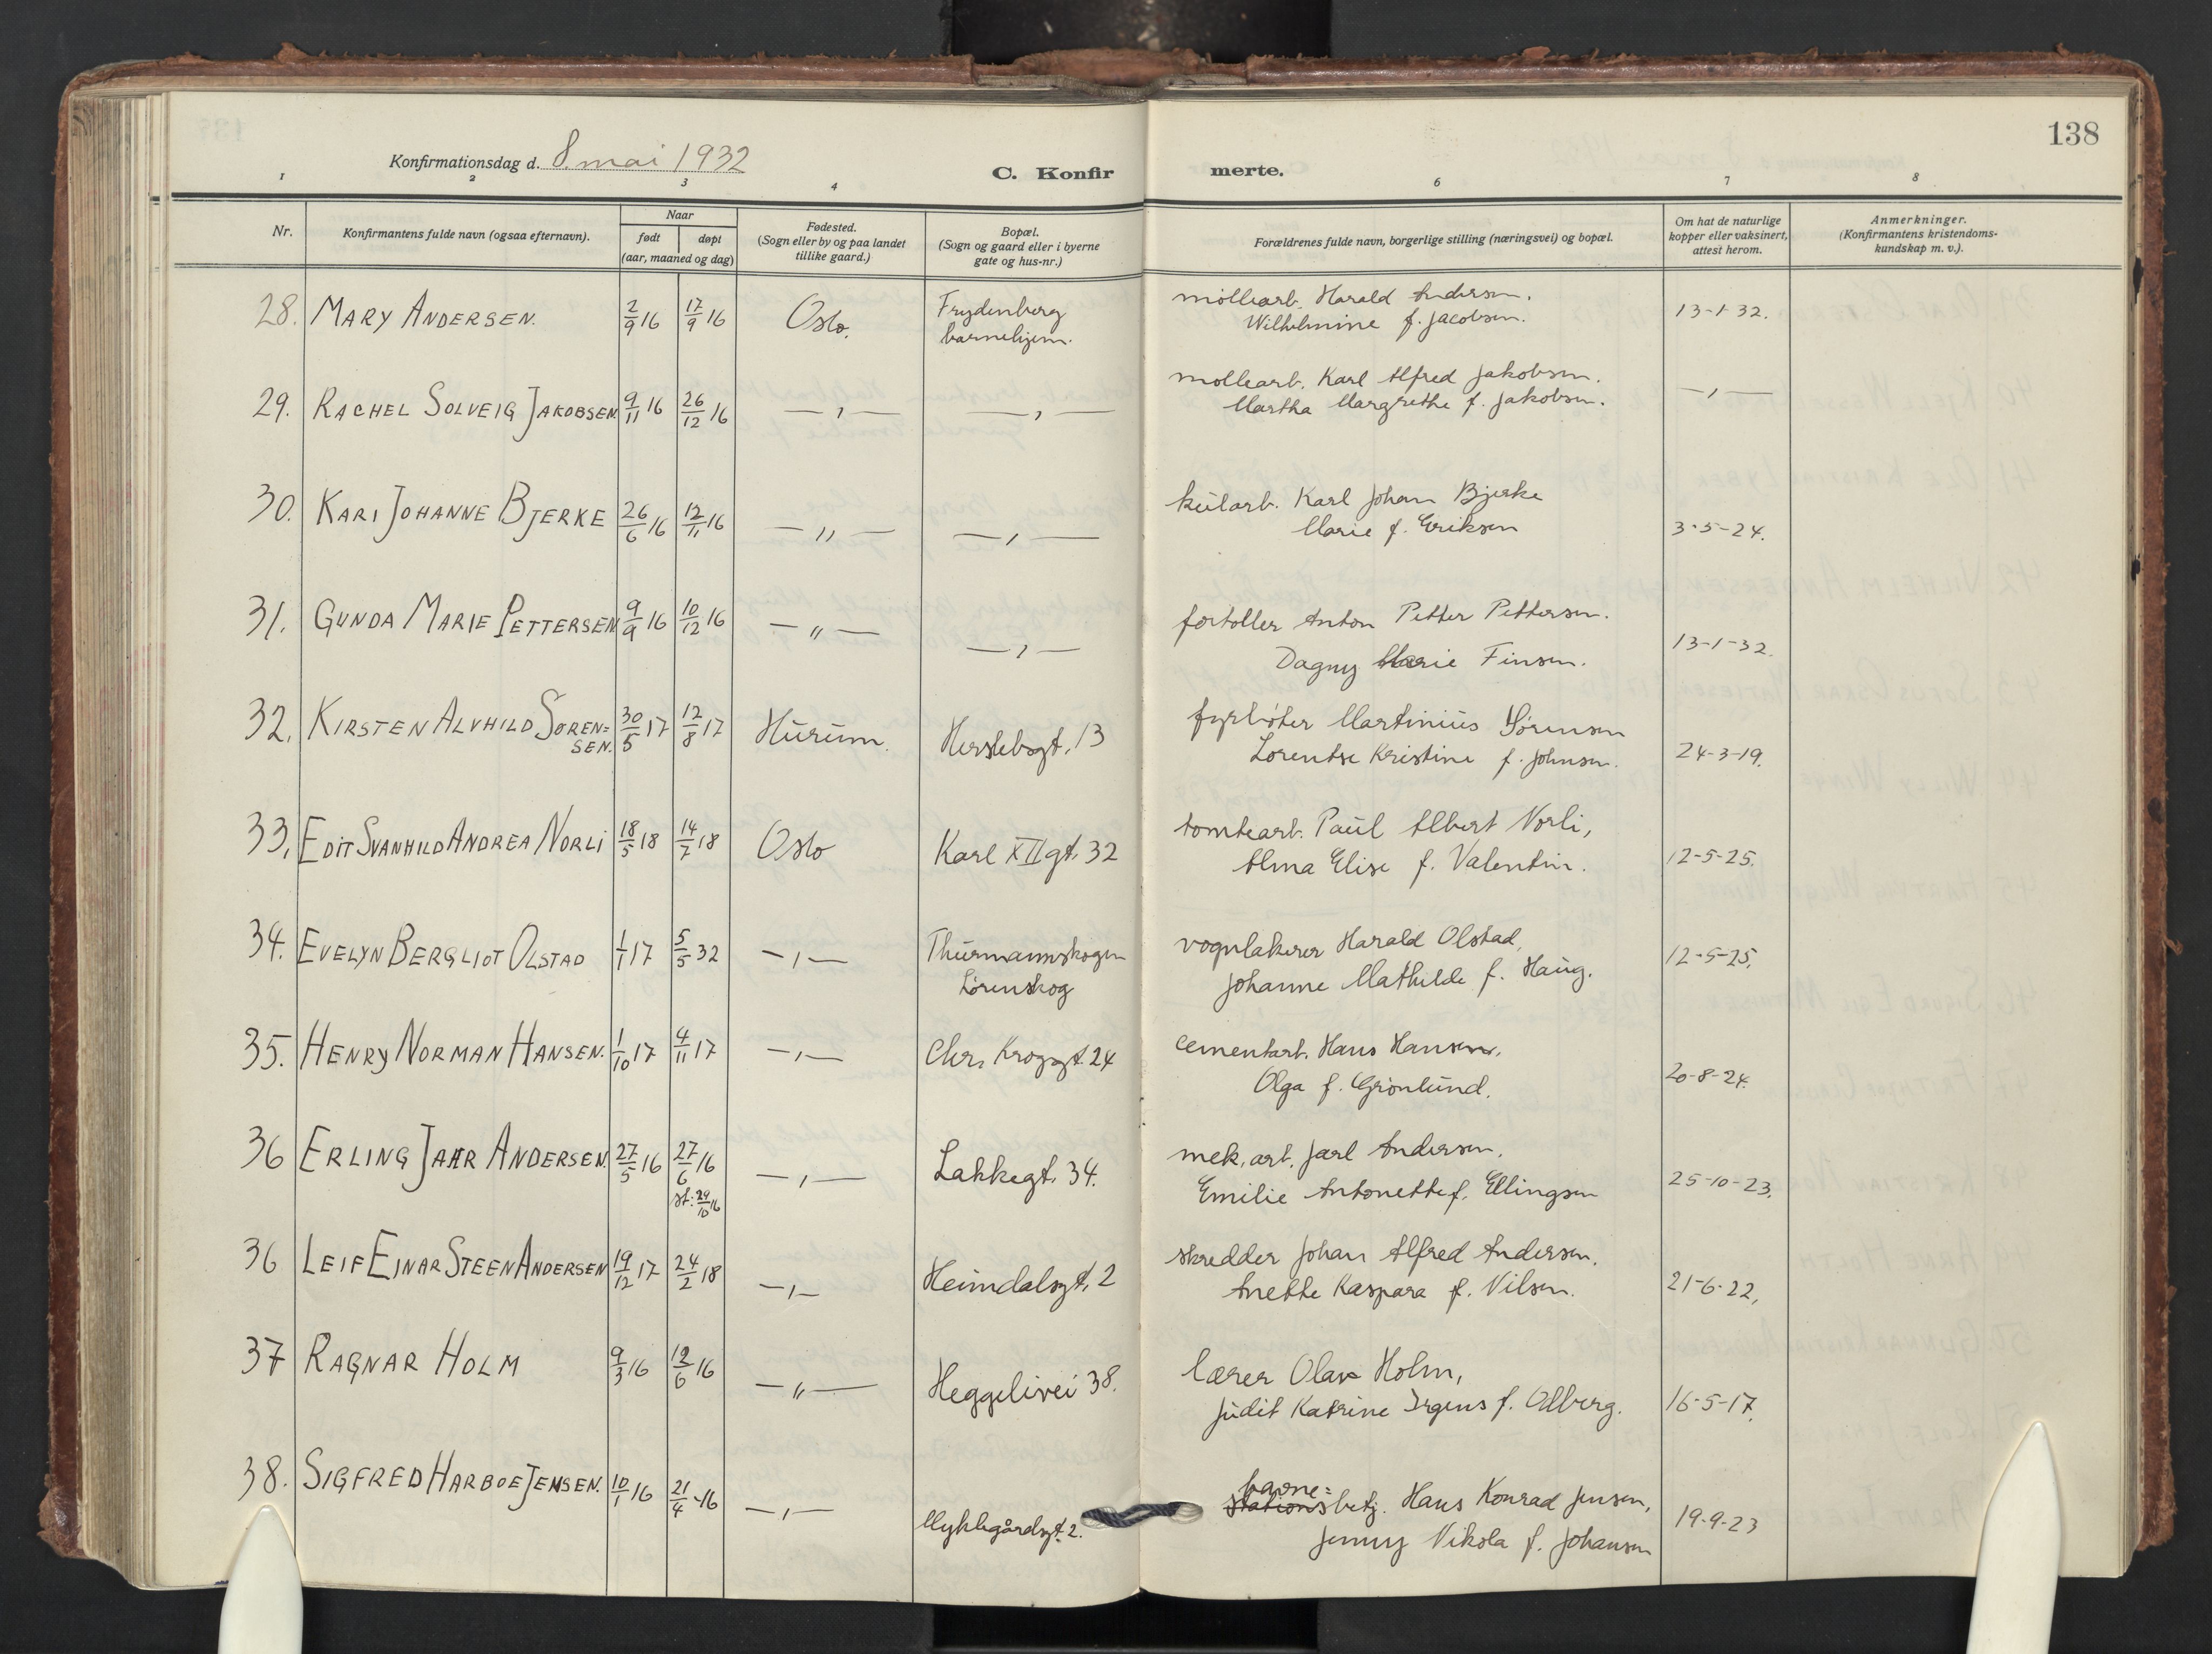 138
Konfirmationsdag d. 8. mai 1932
C. Konfir
merte.
1 2 3 4 6 7 8
Nr.
Konfirmantens fulde navn (ogsaa efternavn).
Naar
født døpt
(aar, maaned og dag)
Fødested.
(Sogn eller by og paa landet
tillike gaard.)
Bopæl.
(Sogn og gaard eller i byerne
gate og hus-nr.)
Forældrenes fulde navn, borgerlige stilling (næringsvei) og bopæl.
Om hat de naturlige
kopper eller vaksinert,
attest herom.
Anmerkninger.
(Konfirmantens kristendoms-
kundskap m. v.).
28. MARY ANDERSEN. 2/9 16 17/9 16 Oslo. Frydenberg
barnehjem.
møllearb. Harald Andersen.
Wilhelmine f. Jacobsen.
13-1-32.
29. RACHEL SOLVEIG JAKOBSEN 9/11 16 26/12 16 — , — — , —
møllearb. Karl Alfred Jakobsen.
Martha Margrethe f. Jakobsen.
— , —
30. KARI JOHANNE BJERKE 26/6 16 12/11 16 — ,, — — , —
kularb. Karl Johan Bjerke
Marie f. Eriksen
3-5-24.
31. GUNDA MARIE PETTERSEN 9/9 16 10/12 16 — ,, — — , —
fortoller Anton Petter Pettersen.
Dagny Marie Finsen.
13-1-32.
32. KIRSTEN ALVHILD SØREN=
SEN. 30/5 17 12/8 17 Hurum. Herslebsgt. 13
fyrbøter Martinius Sørensen
Lorentse Kristine f. Johnsen.
24-3-19.
33. EDIT SVANHILD ANDREA NORLI 18/5 18 14/7 18 Oslo Karl XII gt. 32
tomtearb. Paul Albert Norli,
Alma Elise f. Valentin.
12-5-25.
34. EVELYN BERGLIOT OLSTAD 1/1 17 5/5 32 — , — Thurmannskogen
Lørenskog
vognlakerer Harald Olstad,
Johanne Mathilde f. Haug.
12-5-25.
35. HENRY NORMAN HANSEN. 1/10 17 4/11 17 — , — Chr. Kroggt. 24
cementarb. Hans Hansen.
Olga f. Grönlund.
20-8-24.
36 ERLING JAHR ANDERSEN. 27/5 16 27/6 16
st: 29/10 16 — , — Lakkegt. 34.
mek. arb. Jarl Andersen.
Emilie Antonette f. Ellingsen
25-10-23.
36 LEIF EINAR STEEN ANDERSEN 19/12 17 24/2 18 — , — Heimdalsgt. 2
skredder Johan Alfred Andersen.
Anette Kaspara f. Nilsen.
21-6-22.
37 RAGNAR HOLM 9/3 16 12/6 16 — ,, — Heggelivei 38.
lærer Olav Holm,
Judit Katrine Irgens f. Odberg.
16-5-17.
38. SIGFRED HARBOE JENSEN. 10/1 16 21/4 -16 — , — Myklegårdsgt. 2.
bane=
stationsbetj. Hans Konrad Jensen,
Jenny Nikola f. Johansen
19-9-23